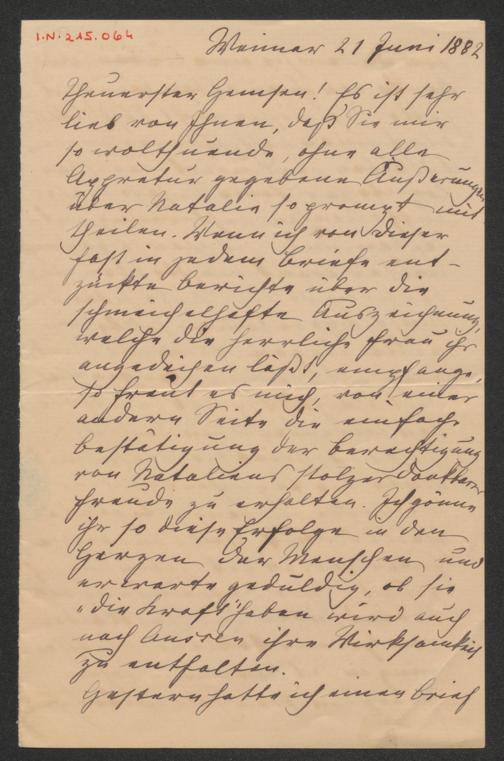 I.N. 215.064
Weimar 21 Juni 1882
Theuerster Hemsen! Es ist sehr
lieb von Ihnen, daß Sie mir
so wolthuende, ohne alle
Appretur gegebene Äußerungen
über Natalie so prompt mit
theilen. Wenn ich von dieser
fast in jedem Briefe ent-
zückte Berichte über die
schmeichelhafte Auszeichnung,
welche die herrliche Frau ihr
angedeihen läßt, empfange,
so freut es mich, von einer
andern Seite die einfache
Bestätigung der Berechtigung
von Nataliens stolzer
Freude zu erhalten. Ich gönne
ihr so diese Erfolge in den
Herzen der Menschen und
erwarte geduldig, ob sie
"die Kraft" haben wird auch
nach Aussen ihre Wirksamkeit
zu entfalten.
Gestern hatte ich einen Brief